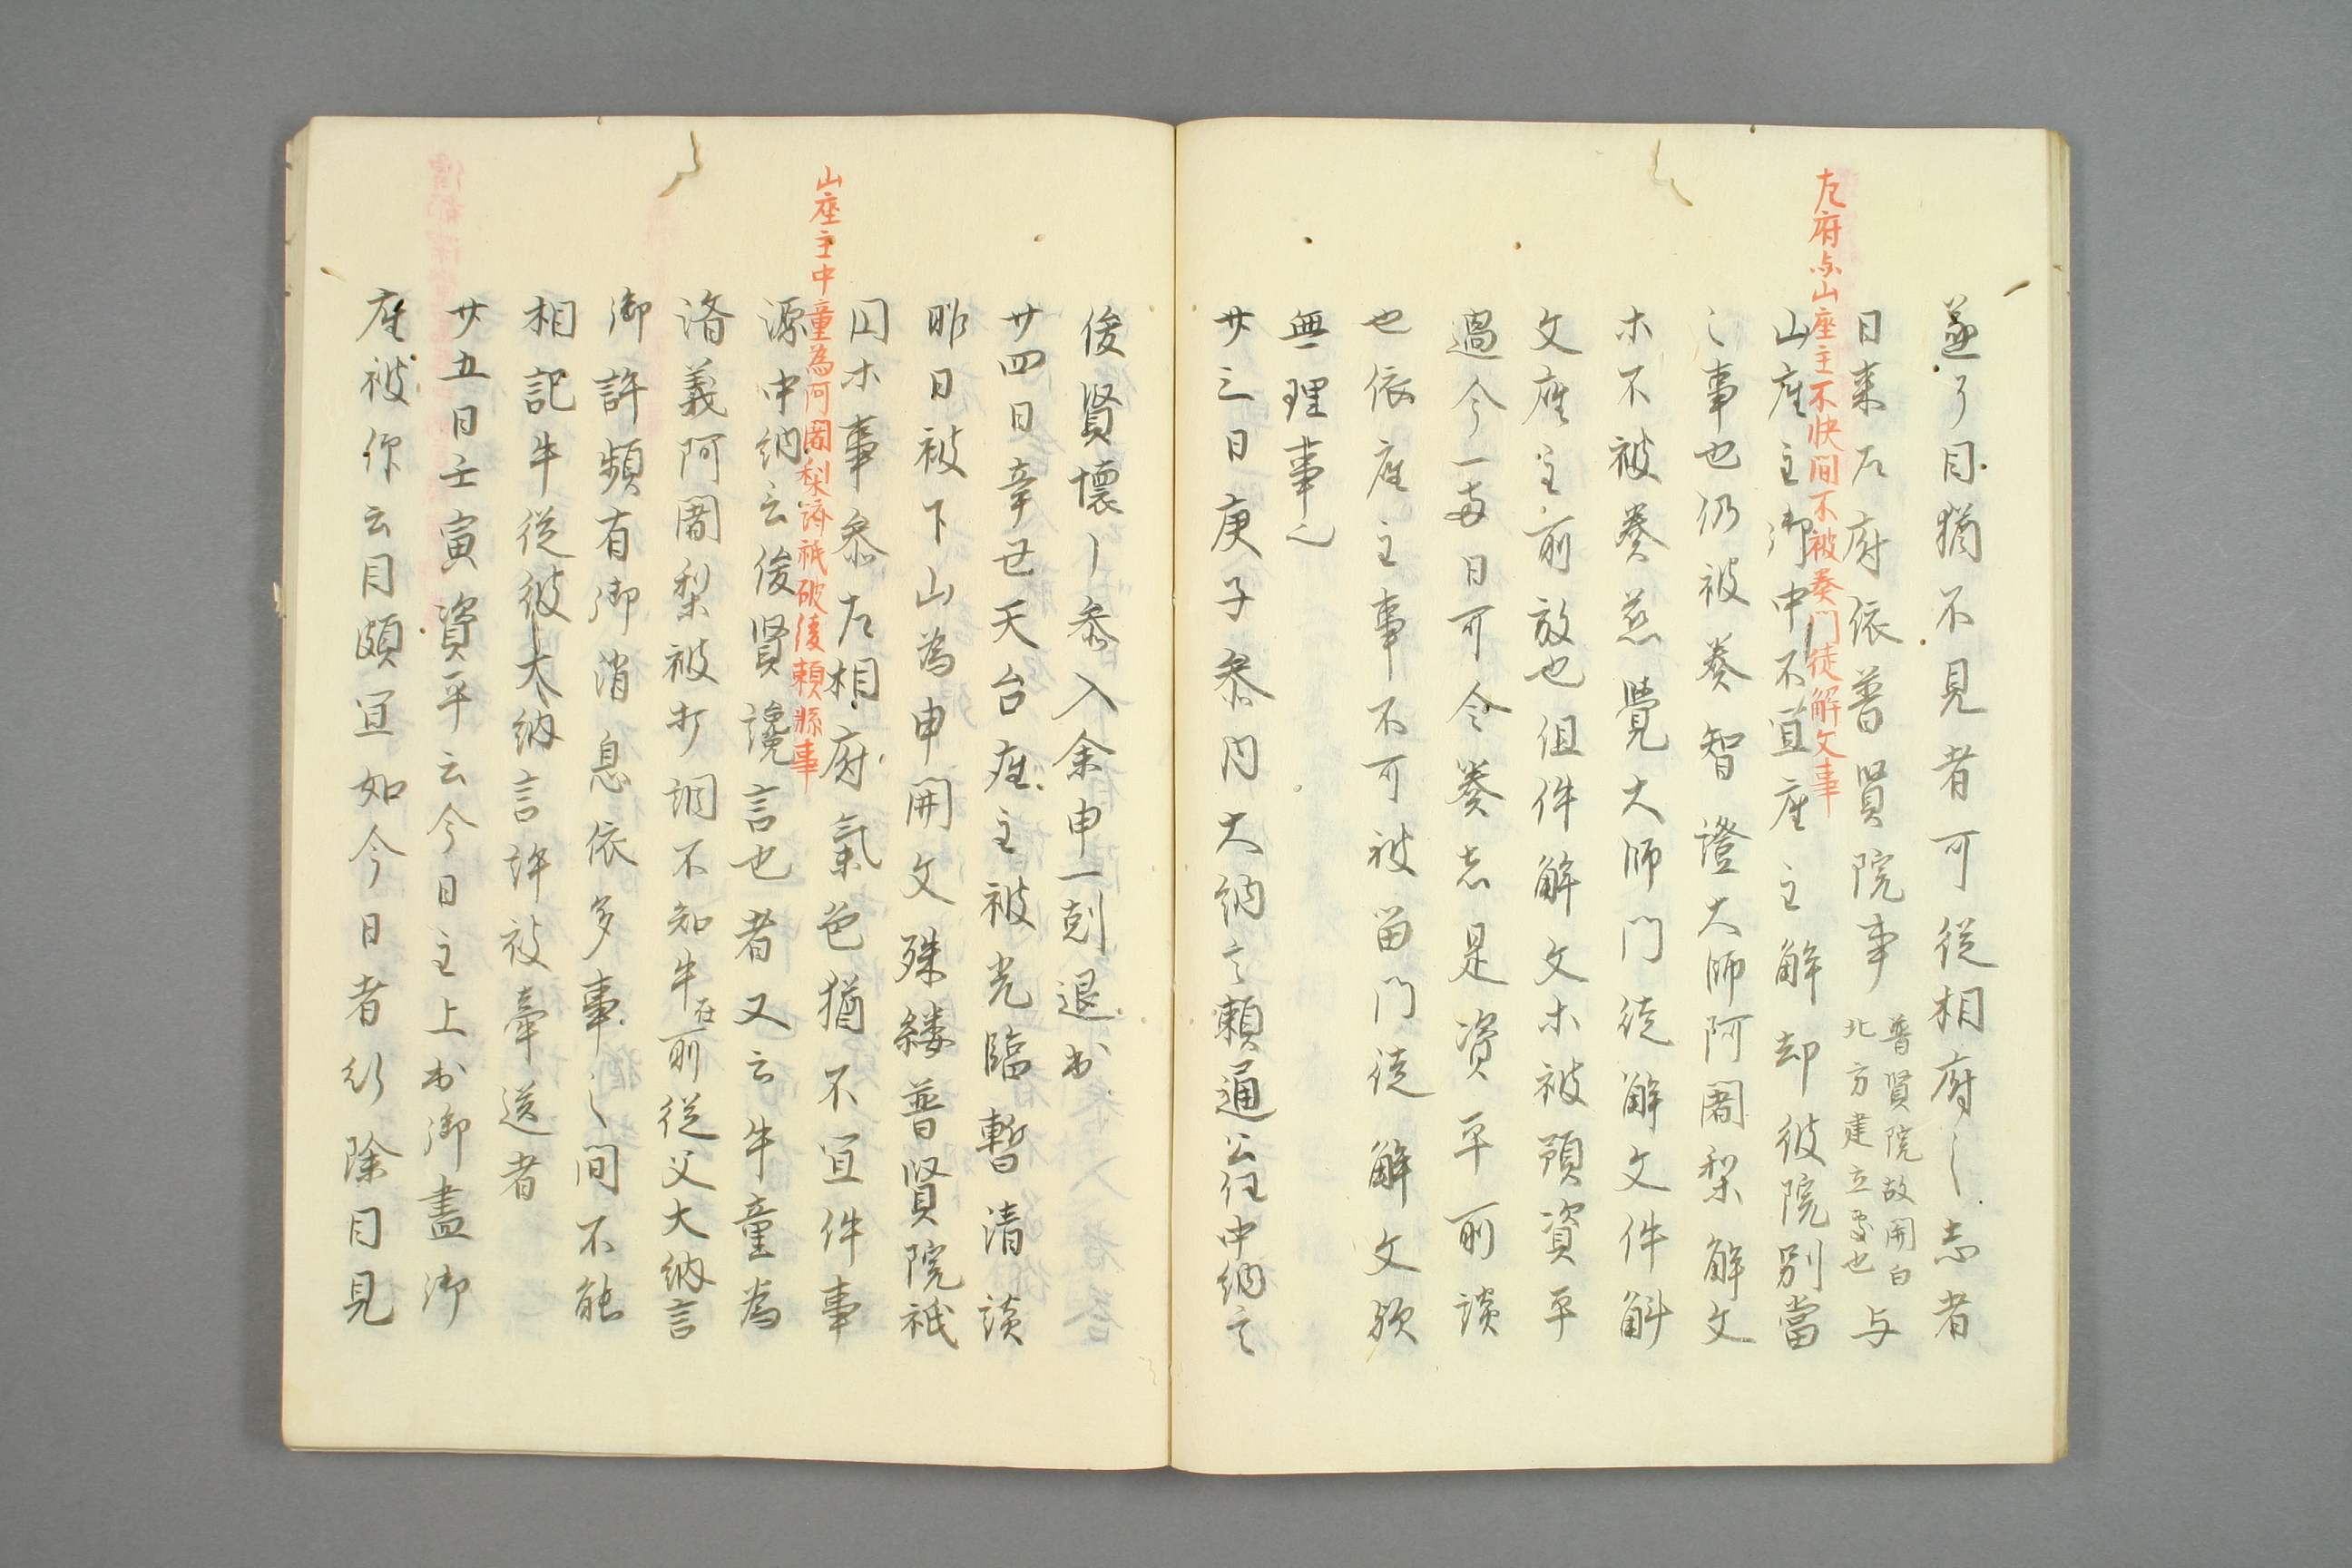 左府与山座主不快間不被奏門徒解文事
遂了目猶不見者可従相府之志者
日来左府依普賢院事
普賢院故関白
北方建立処也
与
山座主御中不宜座主解却彼院別當
之事也仍被奏智證大師阿闍梨解文
ホ不被奏慈覺大師門徒解文件解
文座主前放也但件解文ホ被預資平
過今一両日可令奏志是資平所談
也依座主事不可被留門徒解文歟
無理事之
廿三日庚子参内大納言頼通公任中納言
俊賢懐〻参入余申一剋退出
廿四日辛丑天台座主被光臨暫清談
昨日被下山為申開文殊縷普賢院祇
山座主中童為阿闍梨済祇破俊頼縣事
因ホ事参左相府氣色猶不宜件事
源中納云俊賢讒言也者又云牛童為
済義阿闍梨被打調不知牛在所従父大納言
御許頻有御消息依多事之間不能
相記牛従彼大納言許被牽送者
廿五日壬寅資平云今日主上出御晝御
座被仰云目頗宜如今日者行除目見